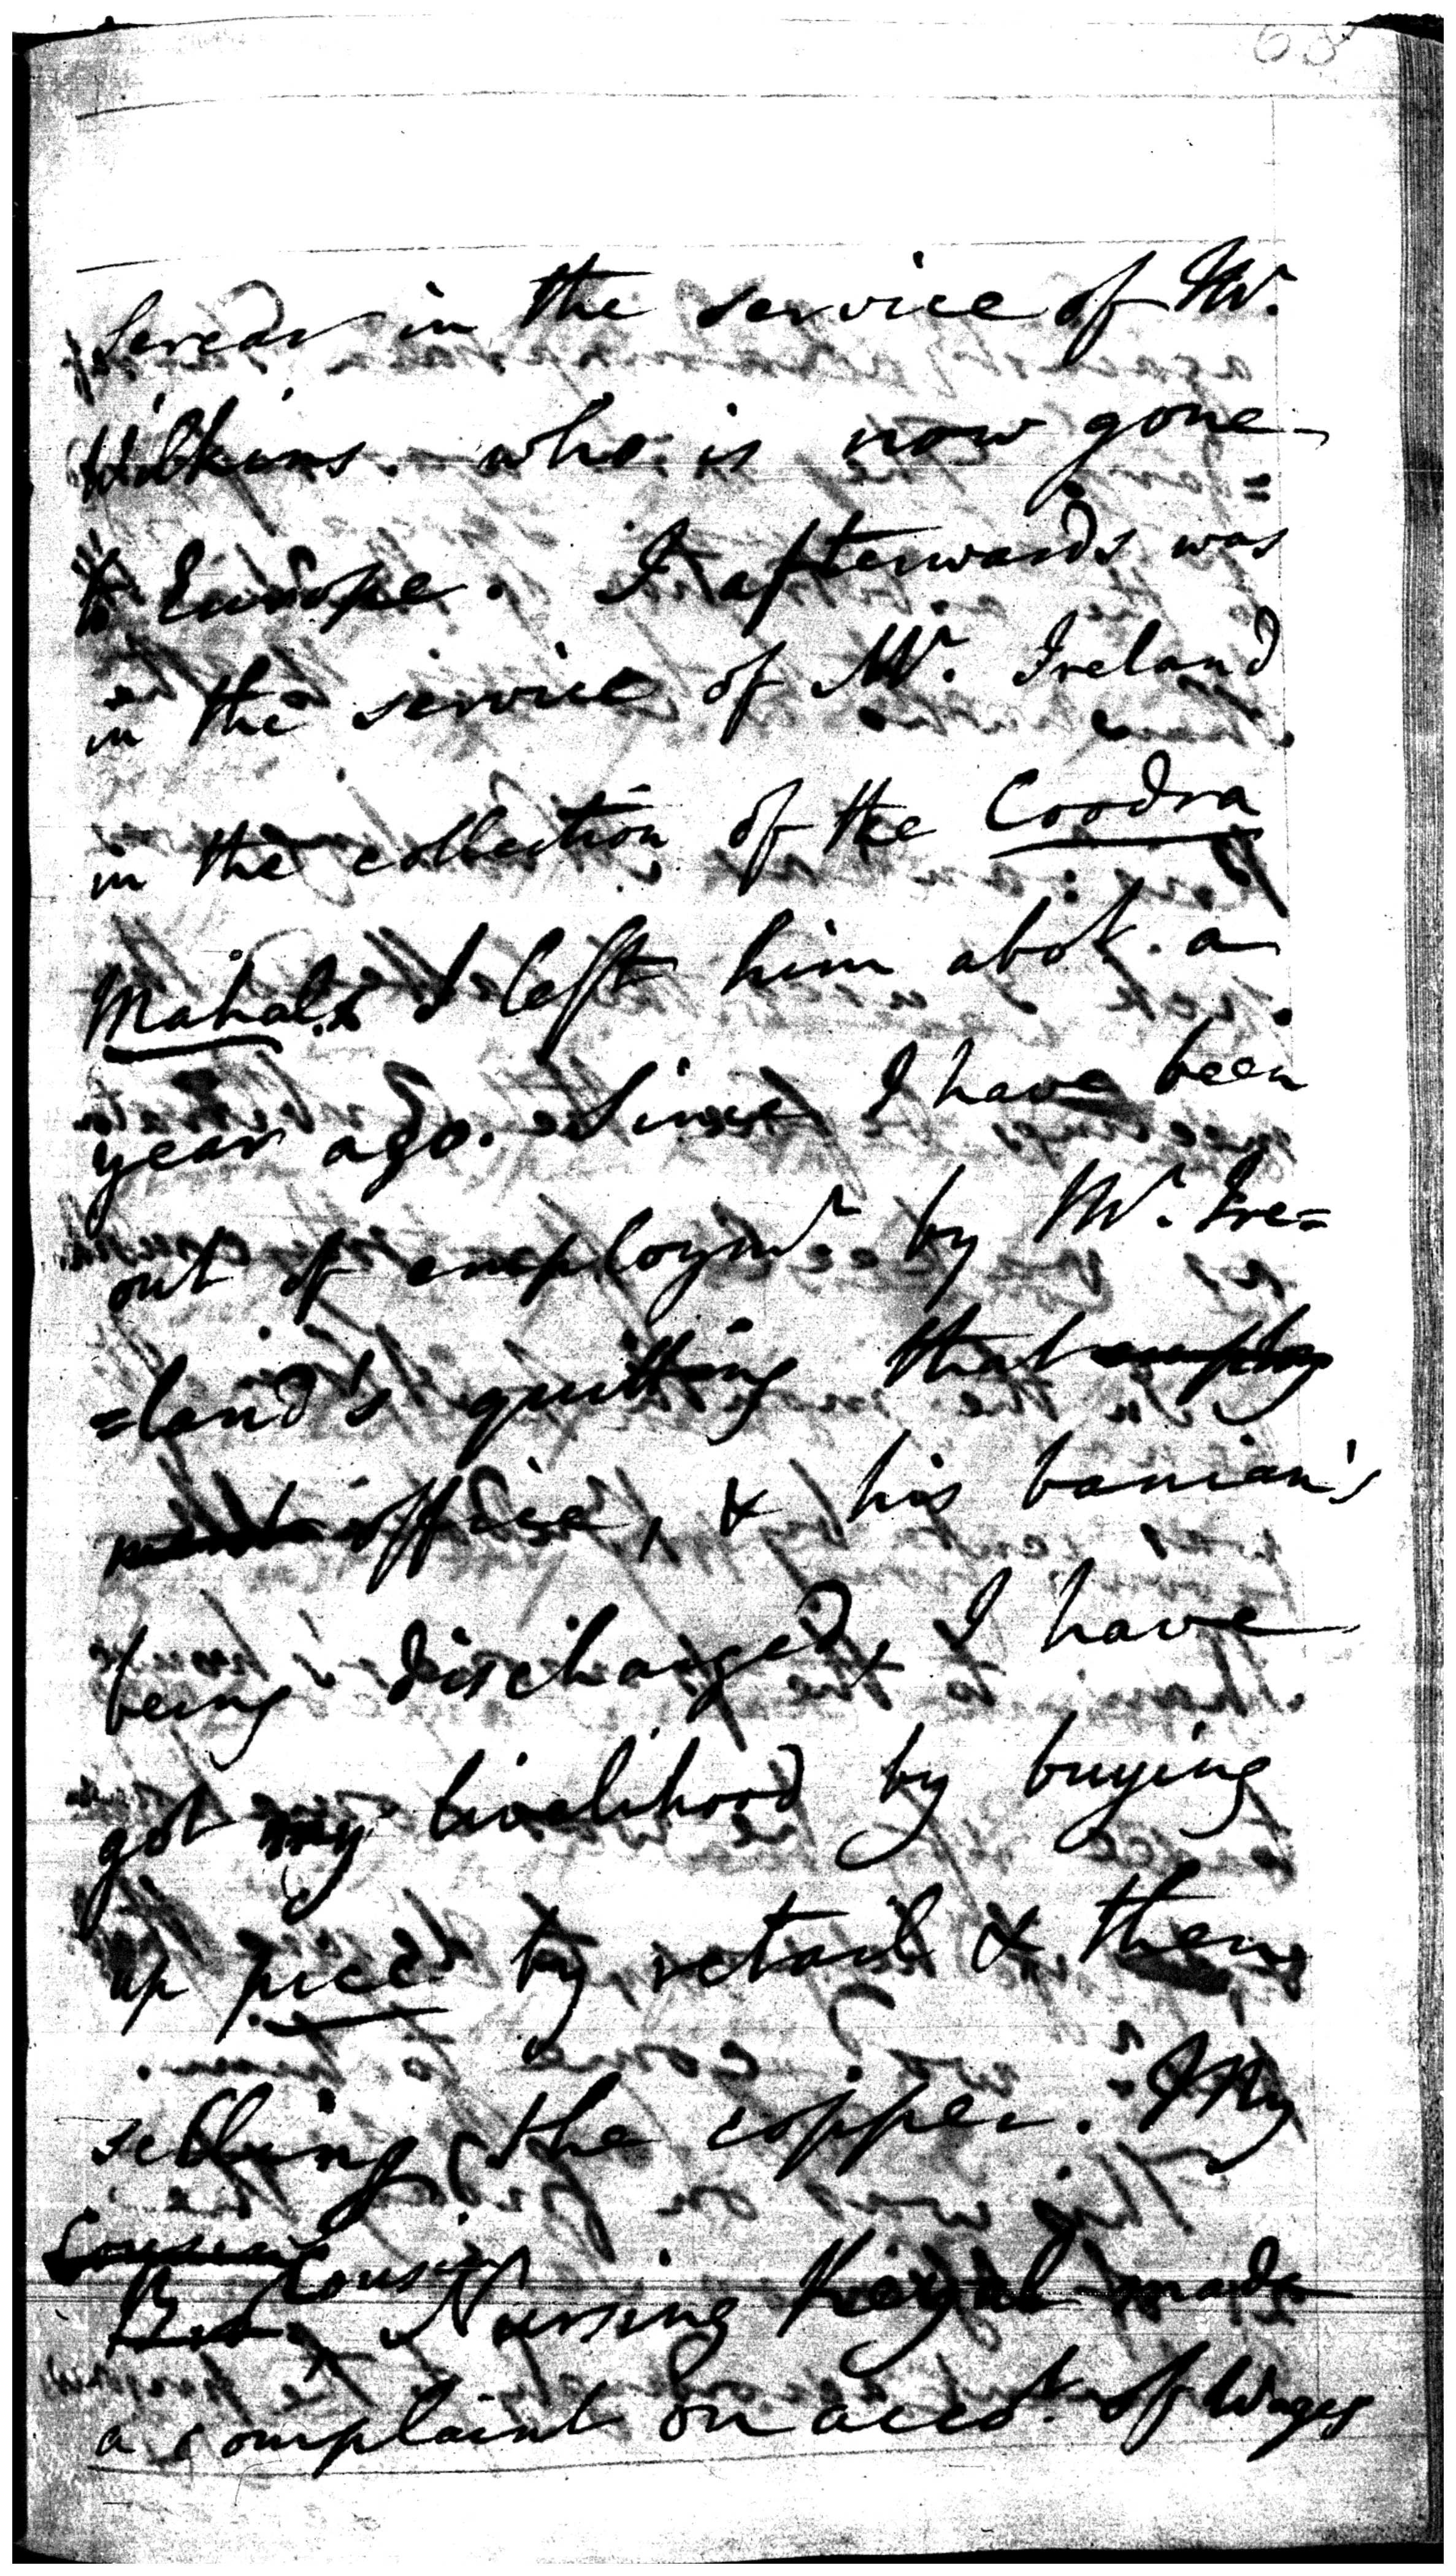 68
Sercar in the service of Mr.
Wilkins. who is now gone
to Europe. I afterwards was
in the service of Mr. Ireland
in the collection of the Coodra
Mahal. I left him abot. a
year ago. Since I have been
out of employmt. by Mr. Ire=
=land's quitting that employ
ment office, & his banian's
being discharged, I have
got my livelihood by buying
up pice by retail & then
selling the copper. My
Cousin
Cousin Nursing made
a complaint on accot. of Wages